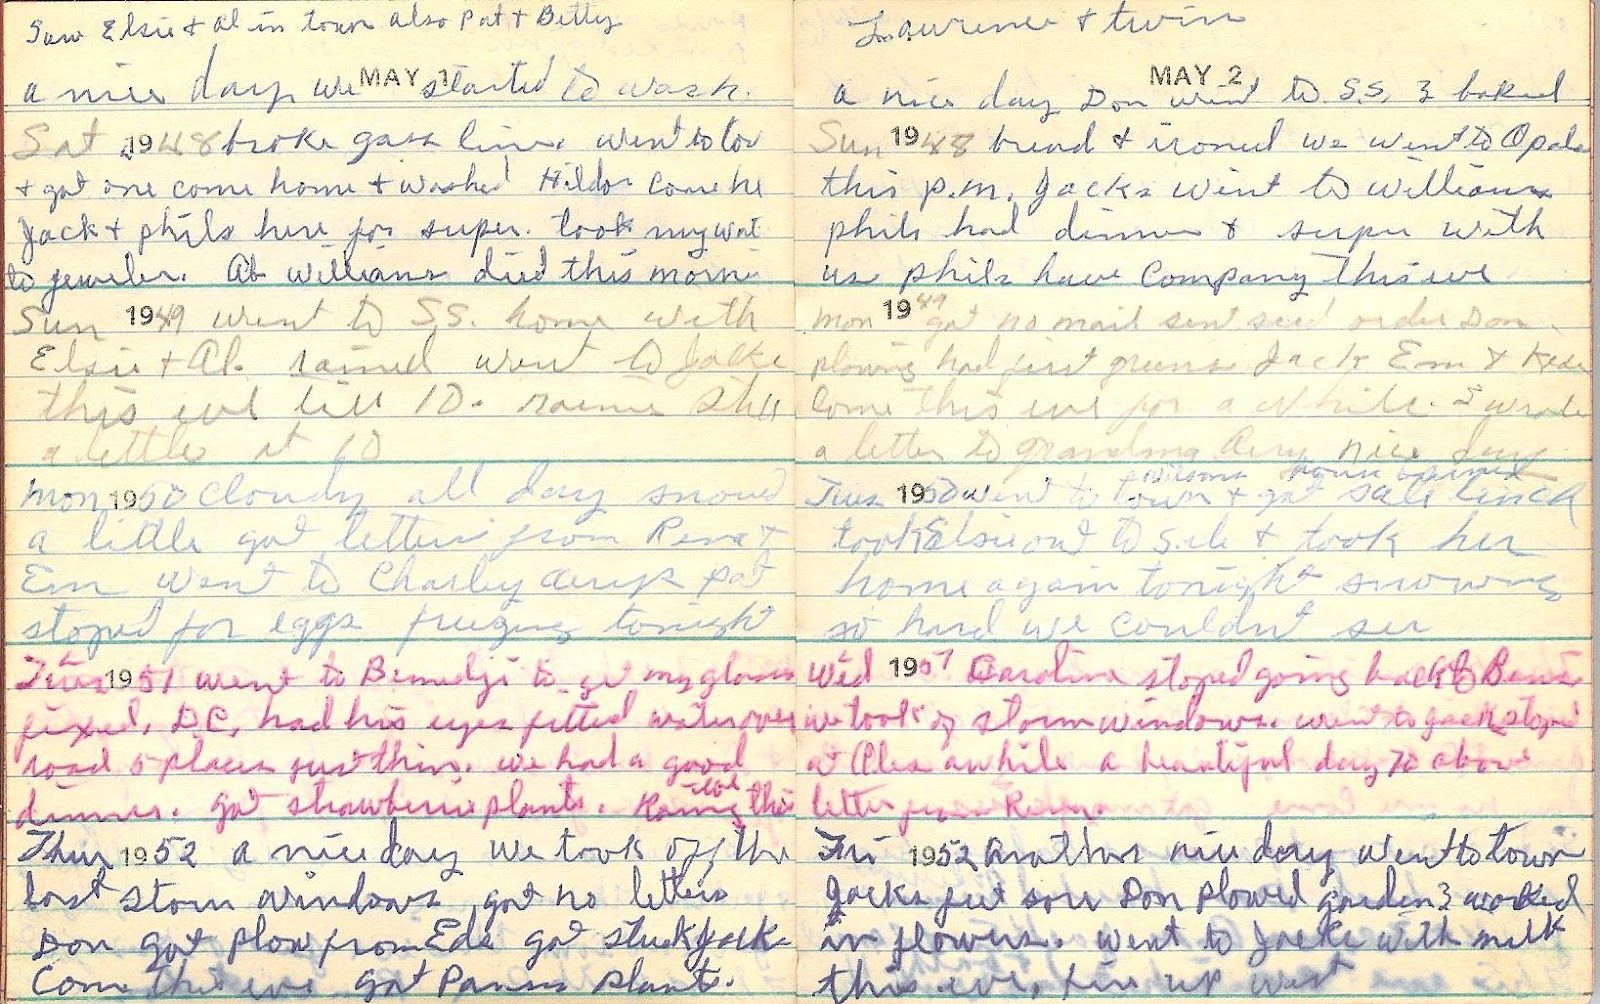 Saw Elsie + Al in town also Pat + Betty
MAY 1
a nice day we started to wash.
Sat 1948 broke gass line. went to tow
+ got one come home + washed Hilda come he
Jack + phils here for super. took my wat
to jeweler. Ab Williams died this morni
Sun 1949 went to S.S. home with
Elsie + Al. rained went to Jacks
this eve till 10. raining still
a little at 10
Mon 1950 Cloudy all day snowed
a little got letters from Rena +
Em went to Charley pat
stoped for eggs freezing tonight
Tues 1951 went to Bemidji to get my glasses
fixed. D.C. had his eyes fitted water over
road 5 places just thin. we had a good
dinner. got strawberrie plants. this
Thur 1952 a nice day we took off the
last storm windows got no letters
Don got plow from Eds got stuck Jacks
Come this eve got Pansy plants.
Laurence + twins
MAY 2
a nice day Don went to S.S. I baked
Sun 1948 bread + ironed we went to Opals
this p.m. Jacks went to Williams
phils had dinner + super with
us phils have Company this eve
Mon 1949 got no mail sent seed order Don
plowing had first greens Jack Em +
Come this eve for a while. I wrote
a letter to grandma nice day
Wilsons house burned
Tues 1950 went to town + got sale lunch
took Elsie out to sale + took her
home again tonight snowing
so hard we couldn't see
Wed 1951 Caroline stoped going back to
we took of storm windows. went to Jacks stoped
at Alex awhile a beautiful day 70 above
letter from Rena.
Fri 1952 Another nice day went to town
Jacks feet sore Don plowed garden I worked
in flowers. went to Jacks with milk
this eve, fire up west